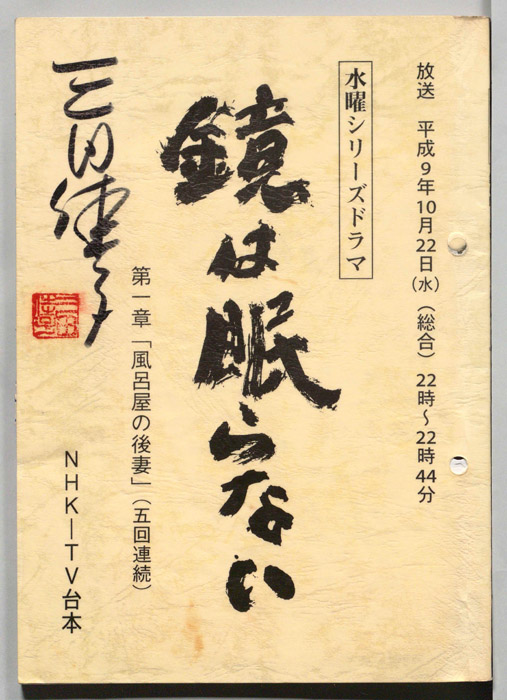 放送　平成9年10月22日（水）（総合）22時～22時44分
水曜シリーズドラマ
鏡は眠らない
第一章「風呂屋の後妻」（五回連続）
三田佳子
NHK―TV台本